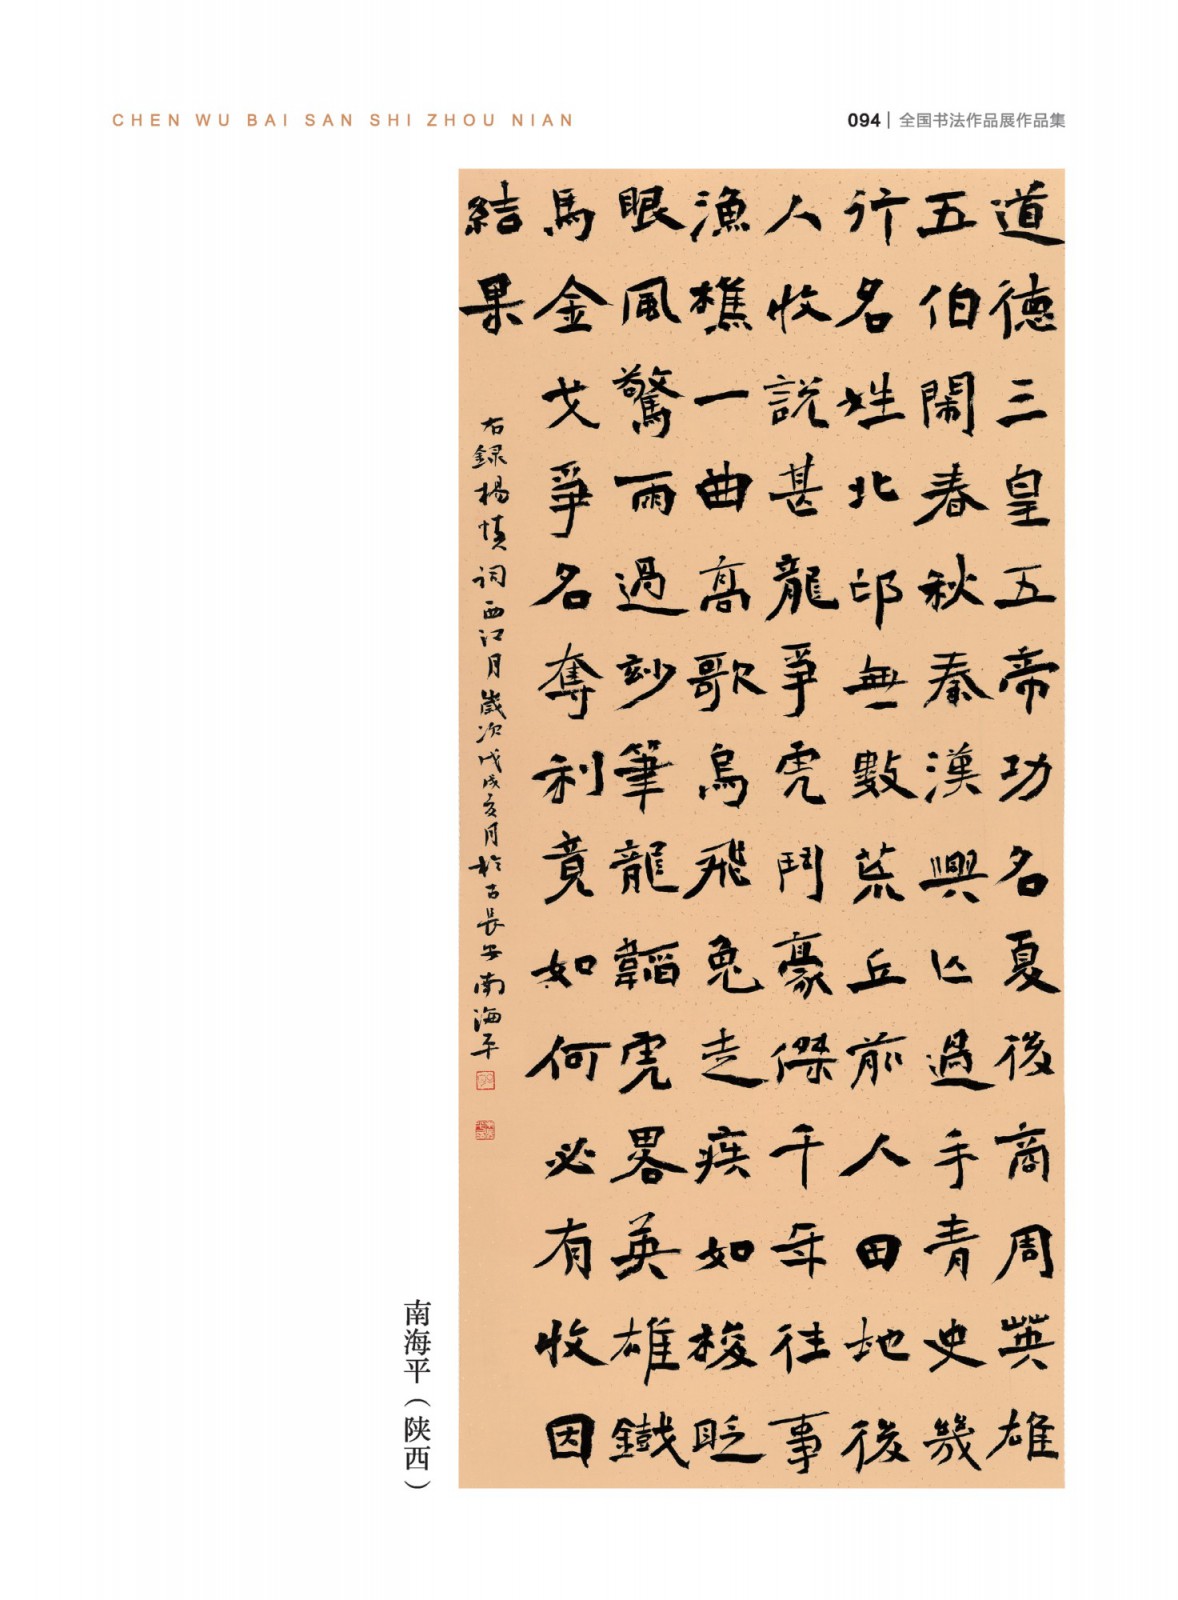 CHEN WU BAI SAN SHI ZHOU NIAN
094 | 全国书法作品展作品集
道德三皇五帝功名夏後商周英雄
五伯鬧春秋秦漢興亡過手青史幾
行名姓北邙無數荒丘前人田地後
人收說甚龍爭虎鬥豪傑千年往事
漁樵一曲高歌烏飛兔走疾如梭眨
眼風驚雨過妙筆龍韜虎畧英雄鐵
馬金戈爭名奪利竟如何必有收因
結果
右録楊慎詞西江月歲次戊戌亥月於古長安南海平
南海平（陕西）